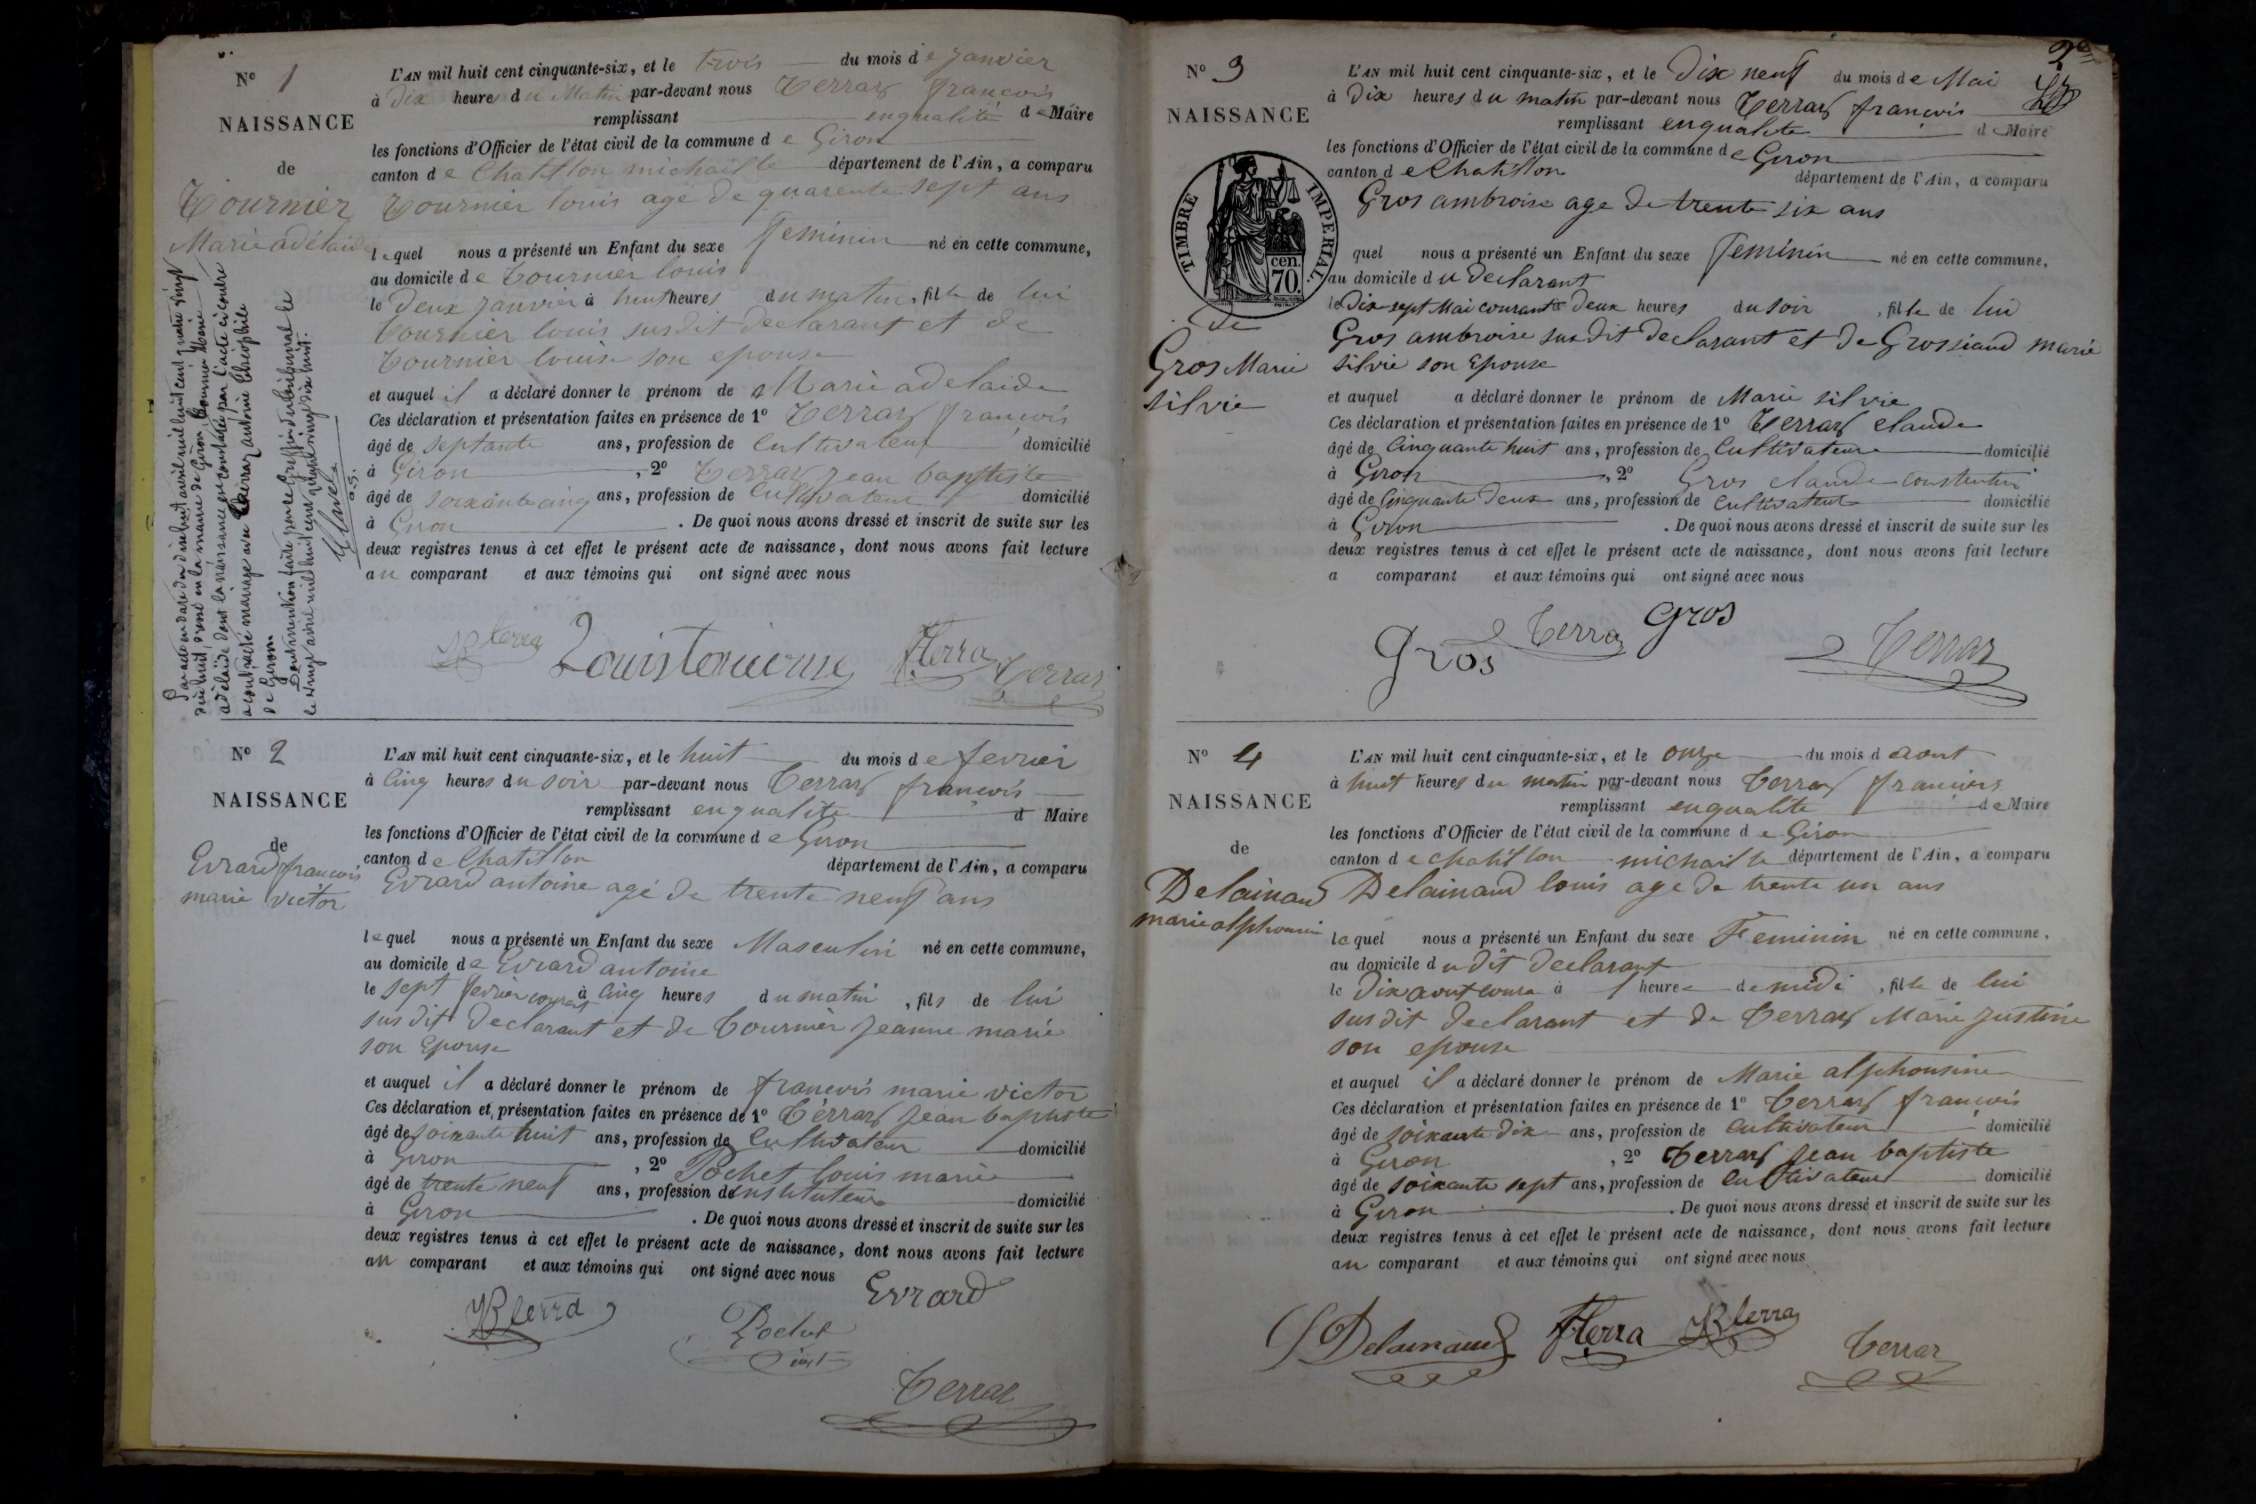 N° 1
NAISSANCE
de
Tournier
Marie adélaide
Par acte en date du dix huit avril mil huit cent quatre vingt
dix huit, dressé en la mairie de Giron, Tournier Marie
adélaïde dont la naissance est constatée par l'acte ci contre
a contracté mariage avec Terraz antoine Théophile
de Giron
Dont mention faite par le Greffier du tribunal le
le vingt avril mil huit cent quatre vingt dix huit.
L'AN mil huit cent cinquante-six, et le trois du mois de janvier
à Dix heures du Matin par-devant nous Terraz françois
remplissant enqualité de Maire
les fonctions d'Officier de l'état civil de la commune de Giron
canton de Chatillon michaille département de l'Ain, a comparu
Tournier louis agé de quarente sept ans
lequel nous a présenté un Enfant du sexe feminin né en cette commune,
au domicile de Tournier louis
le Deux janvier à huit heures du matin, fille de lui
Tournier louis susdit declarant et de
Tournier louise son epouse
et auquel il a déclaré donner le prénom de Marie adelaide
Ces déclaration et présentation faites en présence de 1° Terraz françois
âgé de septante ans, profession de Cultivateur domicilié
à Giron, 2° Terraz jean baptiste
âgé de soixante cinq ans, profession de Cultivateur domicilié
à Giron. De quoi nous avons dressé et inscrit de suite sur les
deux registres tenus à cet effet le présent acte de naissance, dont nous avons fait lecture
au comparant et aux témoins qui ont signé avec nous
JB terra Louis tournier F terra Terraz
N° 2
NAISSANCE
de
Evrard françois
marie victor
L'AN mil huit cent cinquante-six, et le huit du mois de fevrier
à Cinq heures du soir par-devant nous Terraz françois
remplissant enqualite d Maire
les fonctions d'Officier de l'état civil de la commune de Giron
canton de Chatillon département de l'Ain, a comparu
Evrard antoine agé de trente neuf ans
lequel nous a présenté un Enfant du sexe Masculin né en cette commune,
au domicile de Evrard antoine
le sept fevrier courant à cinq heures du matin, fils de lui
sus dit declarant et de Tournier jeanne marie
son Epouse
et auquel il a déclaré donner le prénom de françois marie victor
Ces déclaration et présentation faites en présence de 1° Terraz jean baptiste
âgé de soixante huit ans, profession de Cultivateur domicilié
à Giron, 2° Pochet louis marie
âgé de trente neuf ans, profession de instituteur domicilié
à Giron. De quoi nous avons dressé et inscrit de suite sur les
deux registres tenus à cet effet le présent acte de naissance, dont nous avons fait lecture
au comparant et aux témoins qui ont signé avec nous
Evrard
JB terra Pochet
inst
Terraz
2e
N° 3
NAISSANCE
TIMBRE IMPERIAL.
cen.
70.
de
Gros Marie
silvie
L'AN mil huit cent cinquante-six, et le Dix neuf du mois de Mai
à Dix heures du matin par-devant nous Terraz françois
remplissant enqualite de Maire
les fonctions d'Officier de l'état civil de la commune de Giron
canton de Chatillon département de l'Ain, a comparu
Gros ambroise age de trente six ans
quel nous a présenté un Enfant du sexe feminin né en cette commune,
au domicile du declarant
le Dix sept Mai courant à deux heures du soir, fille de lui
Gros ambroise susdit declarant et de Grossiand marie
silvie son Epouse
et auquel a déclaré donner le prénom de Marie silvie
Ces déclaration et présentation faites en présence de 1° Terraz claude
âgé de Cinquante huit ans, profession de Cultivateur domicilié
à Giron, 2° Gros claude constentin
âgé de Cinquante Deux ans, profession de Cultivateur domicilié
à Giron. De quoi nous avons dressé et inscrit de suite sur les
deux registres tenus à cet effet le présent acte de naissance, dont nous avons fait lecture
a comparant et aux témoins qui ont signé avec nous
Gros Terra Gros Terraz
N° 4
NAISSANCE
de
Delainaud
marie alphonsine
L'AN mil huit cent cinquante-six, et le onze du mois d aout
à huit heures du matin par-devant nous Terraz françois
remplissant enqualite de Maire
les fonctions d'Officier de l'état civil de la commune de Giron
canton de chatillon michaille département de l'Ain, a comparu
Delainaud louis age de trente un ans
lequel nous a présenté un Enfant du sexe Feminin né en cette commune,
au domicile du dit declarant
le Dix aout coura à 1 heure de midi, fille de lui
susdit declarant et de Terraz Marie justine
son epouse
et auquel il a déclaré donner le prénom de Marie alphonsine
Ces déclaration et présentation faites en présence de 1° Terraz françois
âgé de soixante dix ans, profession de Cultivateur domicilié
à Giron, 2° Terraz jean baptiste
âgé de soixante sept ans, profession de Cultivateur domicilié
à Giron. De quoi nous avons dressé et inscrit de suite sur les
deux registres tenus à cet effet le présent acte de naissance, dont nous avons fait lecture
au comparant et aux témoins qui ont signé avec nous
Delainaud F terra JB terra
Terraz